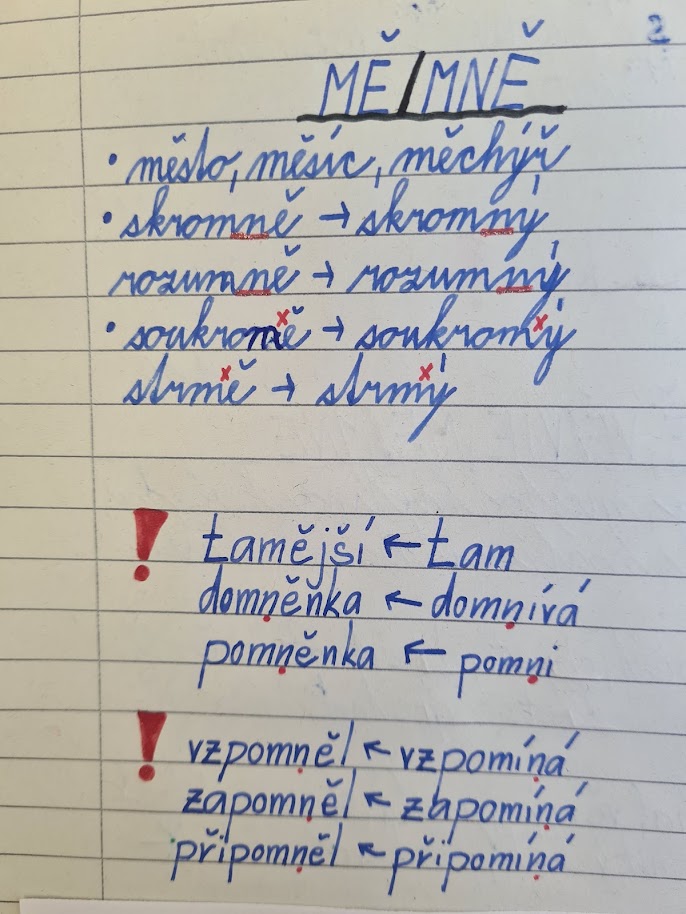 2
MĚ/MNĚ
• město, měsíc, měchýř
• skromně → skromný
rozumně → rozumný
• soukromě → soukromý
strmě → strmý
! tamější ← tam
domněnka ← domnívá
pomněnka ← pomni
! vzpomněl ← vzpomíná
zapomněl ← zapomíná
připomněl ← připomíná